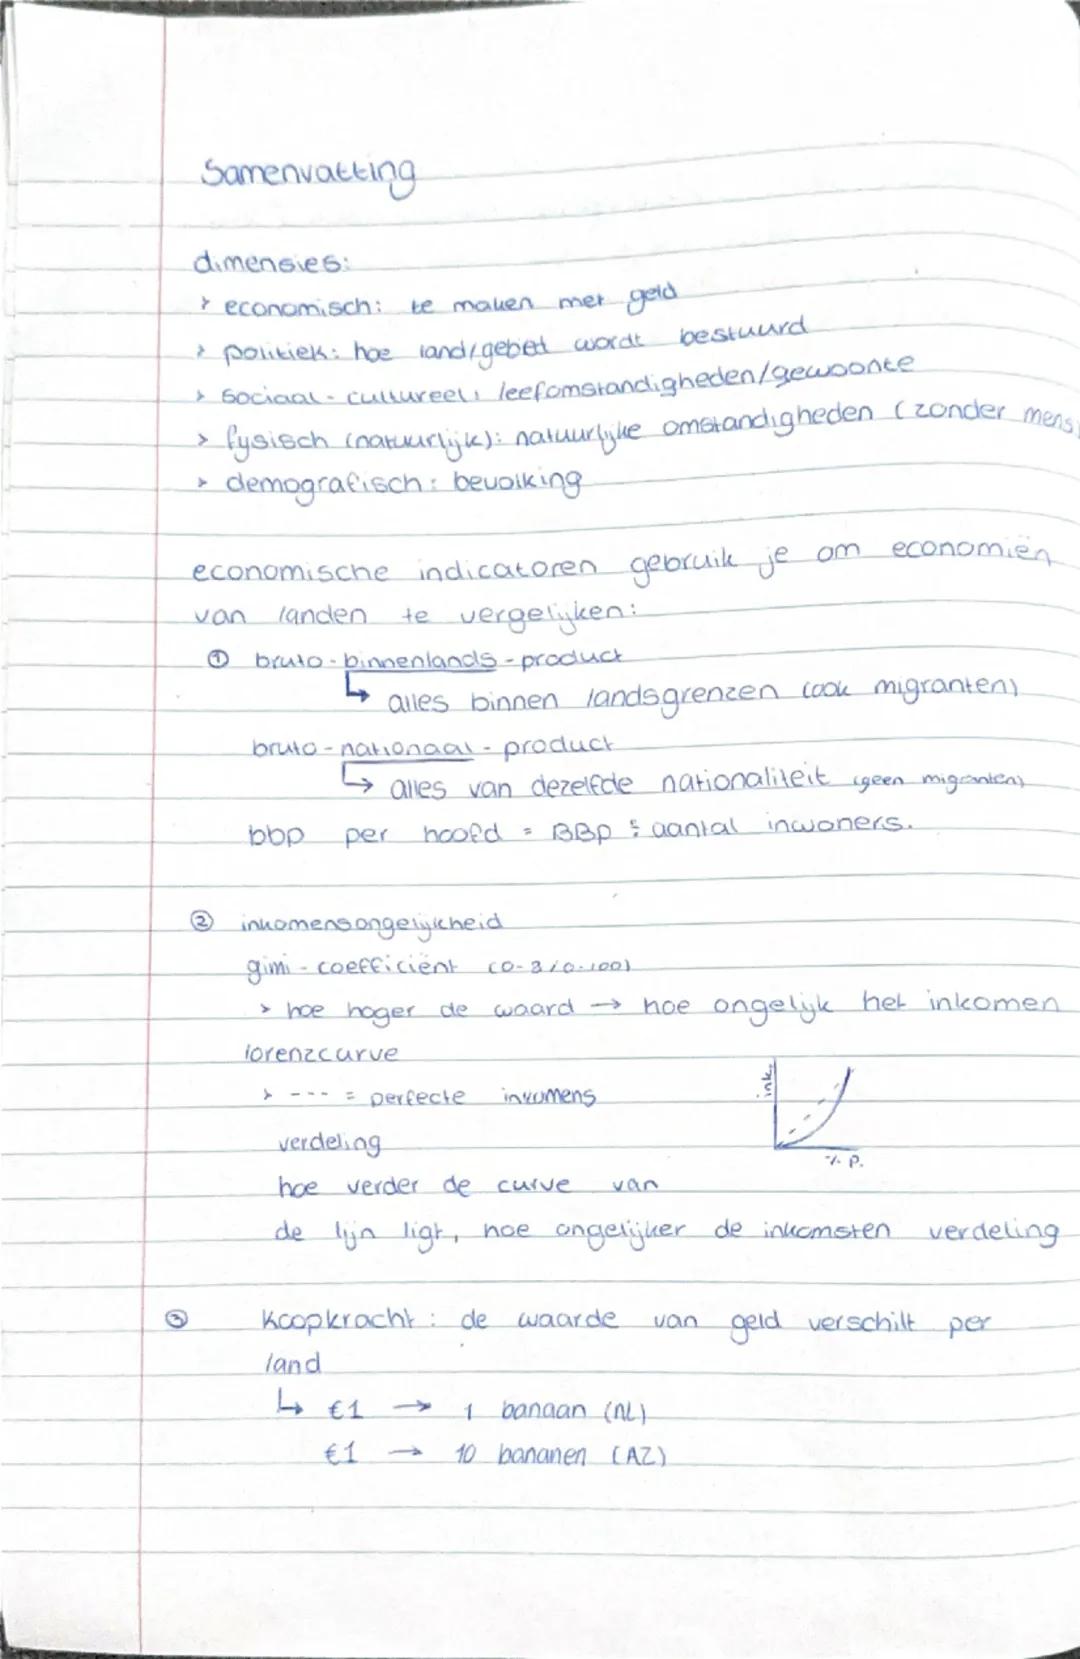 Samenvatting
dimensies:
> economisch: te maken met geld
> politiek: hoe land/gebied wordt bestuurd
> sociaal-cultureel: leefomstandigheden/gewoonte
> fysisch (natuurlijk): natuurlijke omstandigheden (zonder mens
> demografisch: bevolking
economische indicatoren gebruik je om economiën
van landen te vergelijken:
① bruto-binnenlands-product
↳ alles binnen landsgrenzen (ook migranten)
bruto-nationaal-product
↳ alles van dezelfde nationaliteit (geen migranten)
bbp per hoofd = BBP : aantal inwoners.
② inkomensongelijkheid
gimi-coefficiënt (0-1/0-100)
> hoe hoger de waard → hoe ongelijk het inkomen
lorenzcurve
> --- = perfecte inkomens
verdeling
ink.
% p.
hoe verder de curve van
de lijn ligt, hoe ongelijker de inkomsten verdeling
③ Koopkracht: de waarde van geld verschilt per
land
↳ €1 → 1 banaan (NL)
€1 → 10 bananen (AZ)